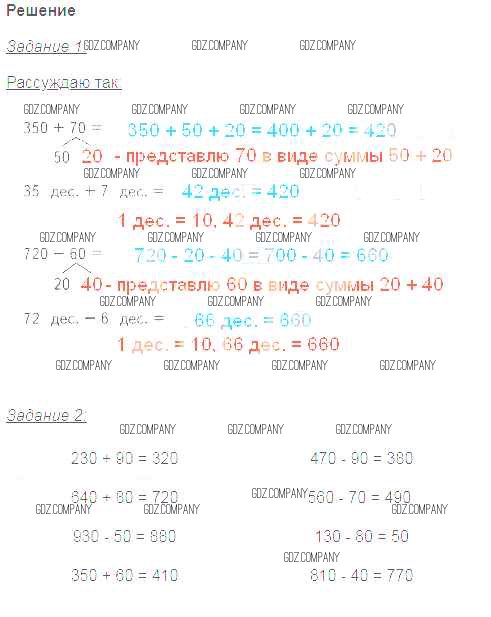 Решение
Задание 1: GDZ.COMPANY GDZ.COMPANY GDZ.COMPANY
Рассуждаю так:
GDZ.COMPANY GDZ.COMPANY GDZ.COMPANY GDZ.COMPANY
350 + 70 = 350 + 50 + 20 = 400 + 20 = 420
50 20 - представлю 70 в виде суммы 50 + 20
GDZ.COMPANY GDZ.COMPANY GDZ.COMPANY
35 дес. + 7 дес. = 42 дес. = 420
1 дес. = 10, 42 дес. = 420
GDZ.COMPANY GDZ.COMPANY GDZ.COMPANY GDZ.COMPANY
720 − 60 = 720 - 20 - 40 = 700 - 40 = 660
20 40 - представлю 60 в виде суммы 20 + 40
GDZ.COMPANY GDZ.COMPANY GDZ.COMPANY
72 дес. − 6 дес. = 66 дес. = 660
1 дес. = 10, 66 дес. = 660
GDZ.COMPANY GDZ.COMPANY GDZ.COMPANY GDZ.COMPANY
Задание 2:
GDZ.COMPANY GDZ.COMPANY GDZ.COMPANY
230 + 90 = 320 470 - 90 = 380
640 + 80 = 720 GDZ.COMPANY 560 - 70 = 490
GDZ.COMPANY GDZ.COMPANY GDZ.COMPANY
930 - 50 = 880 130 - 80 = 50
GDZ.COMPANY
350 + 60 = 410 810 - 40 = 770